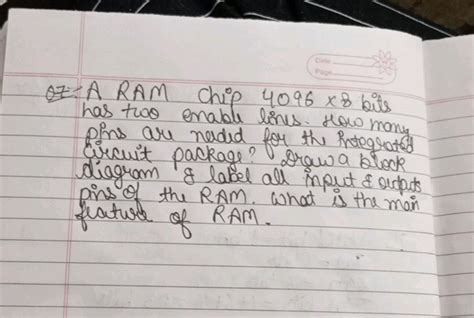 Date
Page
Q7- A RAM chip 4096 x8 bits
has two enable lines. How many
pins are needed for the integrated
circuit package? Draw a block
diagram & label all input & outputs
pins of the RAM. What is the main
feature of RAM.